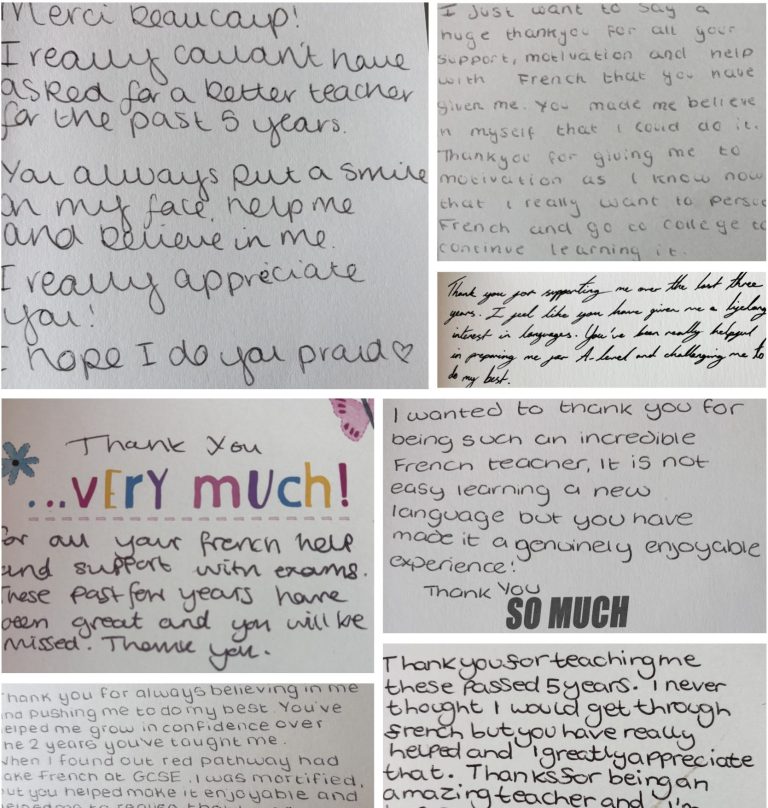 Merci beaucoup!
I really couldn't have
asked for a better teacher
for the past 5 years.
You always put a smile
on my face, help me
and believe in me.
I really appreciate
you!
I hope I do you proud♡
I just want to say a
huge thankyou for all your
support, motivation and help
with French that you have
given me. You made me believe
in myself that I could do it.
Thankyou for giving me to
motivation as I know now
that I really want to persue
French and go to college to
continue learning it.
Thank you for supporting me over the last three
years. I feel like you have given me a lifelong
interest in languages. You've been really helpful
in preparing me for A-level and challenging me to
do my best.
Thank You
...very much!
for all your french help
and support with exams.
These past few years have
been great and you will be
missed. Thank you.
I wanted to thank you for
being such an incredible
French teacher, It is not
easy learning a new
language but you have
made it a genuinely enjoyable
experience!
Thank You
SO MUCH
Thank you for always believing in me
and pushing me to do my best. You've
helped me grow in confidence over
the 2 years you've taught me.
When I found out red pathway had
take French at GCSE, I was mortified,
but you helped make it enjoyable and
helped me to
Thank you for teaching me
these passed 5 years. I never
thought I would get through
french but you have really
helped and I greatly appreciate
that. Thanks for being an
amazing teacher and